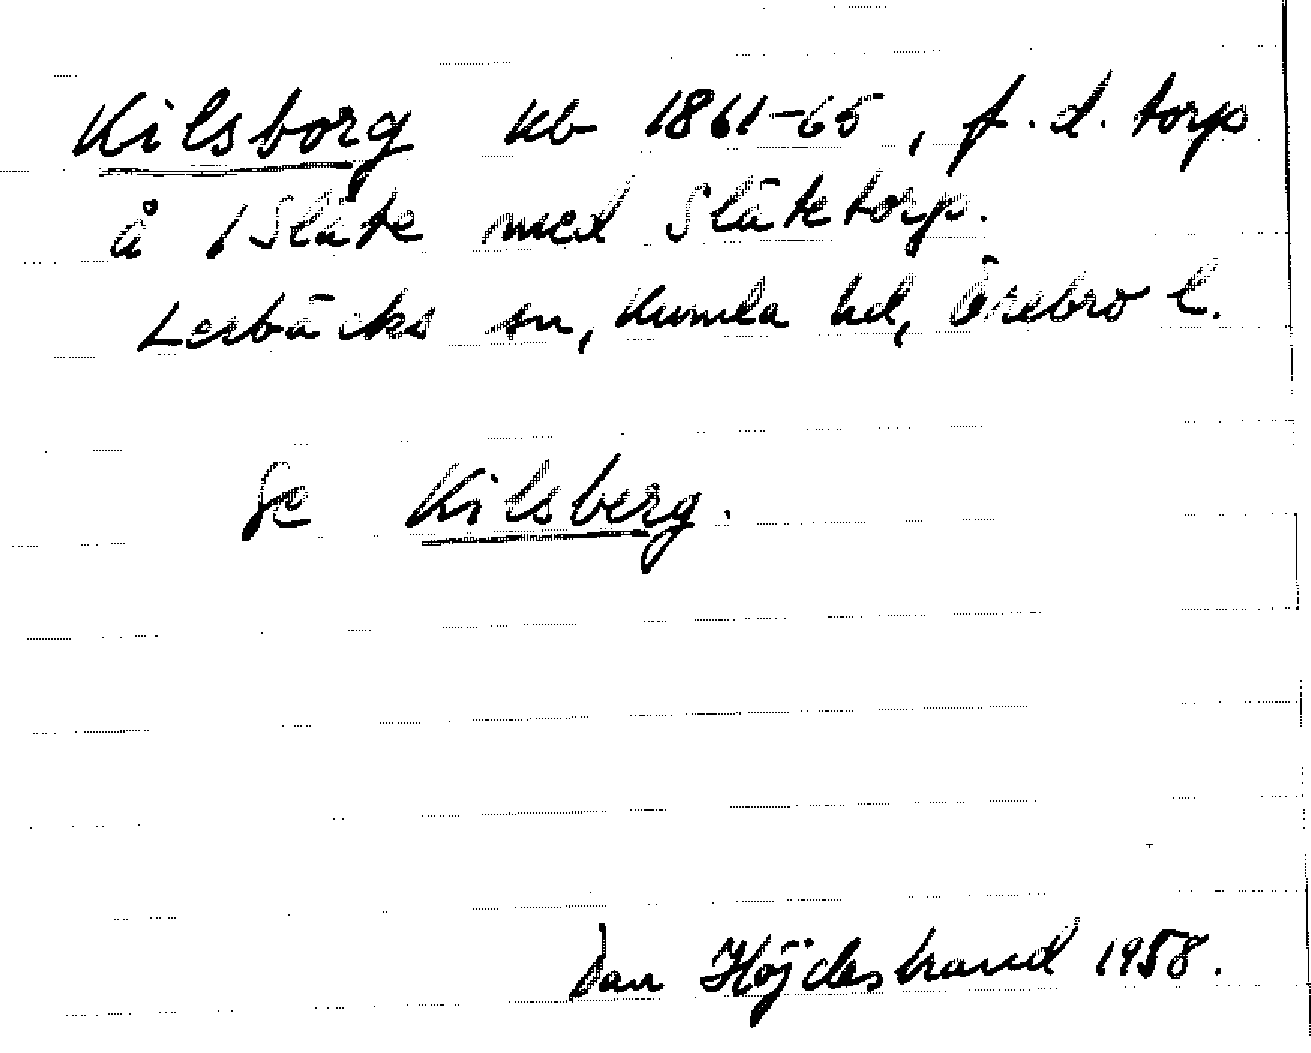 Kilsborg kb 1861-65, f.d. torp
å 1 Slåte med Slåtetorp.
Lerbäcks sn, Kumla hd, Örebro l.
Se Kilsberg.
Dan Höjdestrand 1958.